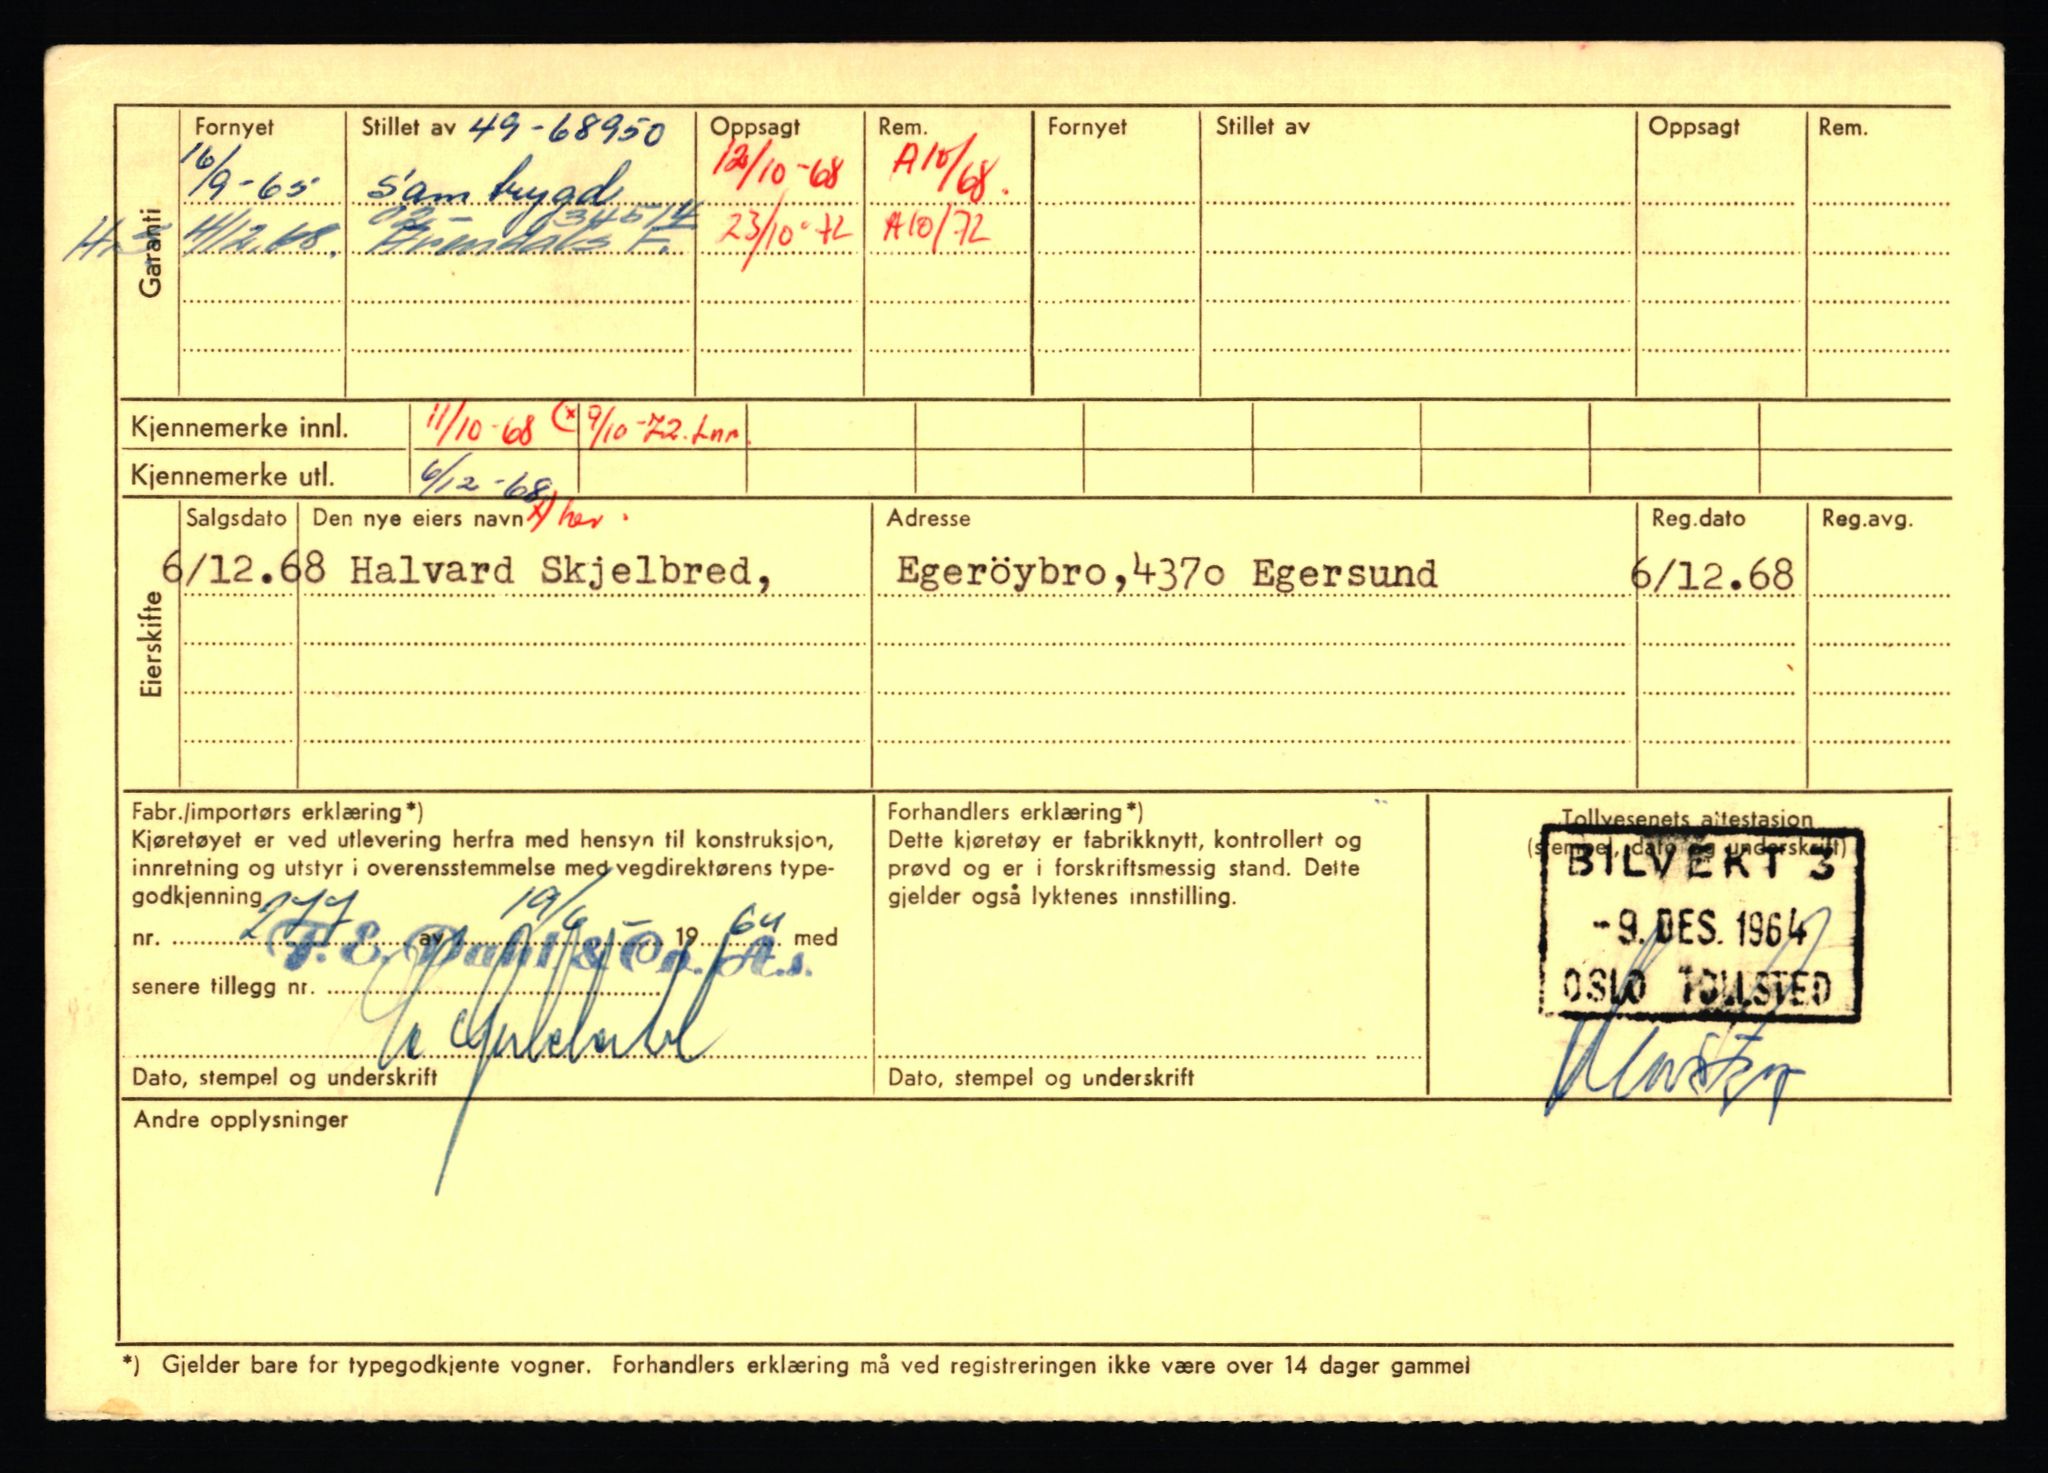 Garanti
Fornyet Stillet av 49-68950 Oppsagt Rem. Fornyet Stillet av Oppsagt Rem.
16/9-65 Sambygd 12/10-68 A10/68.
4/12.68. Arendals F. 23/10-72 A10/72
Kjennemerke innl. 11/10-68 (x 9/10-72.
Kjennemerke utl. 6/12-68
Eierskifte
Salgsdato Den nye eiers navn x) her. Adresse Reg.dato Reg.avg.
6/12.68 Halvard Skjelbred, Egeröybro,4370 Egersund 6/12.68
Fabr./importørs erklæring*)
Kjøretøyet er ved utlevering herfra med hensyn til konstruksjon,
innretning og utstyr i overensstemmelse med vegdirektørens type-
godkjenning
nr. 277 av 19/6 - 19 64 med
F. E. Dahl & Co. A.s.
senere tillegg nr.
Dato, stempel og underskrift
Forhandlers erklæring*)
Dette kjøretøy er fabrikknytt, kontrollert og
prøvd og er i forskriftsmessig stand. Dette
gjelder også lyktenes innstilling.
Dato, stempel og underskrift
Tollvesenets attestasjon
(stempel, dato og underskrift)
BILVEKT 3
-9. DES. 1964
OSLO TOLLSTED
Andre opplysninger
*) Gjelder bare for typegodkjente vogner. Forhandlers erklæring må ved registreringen ikke være over 14 dager gammel